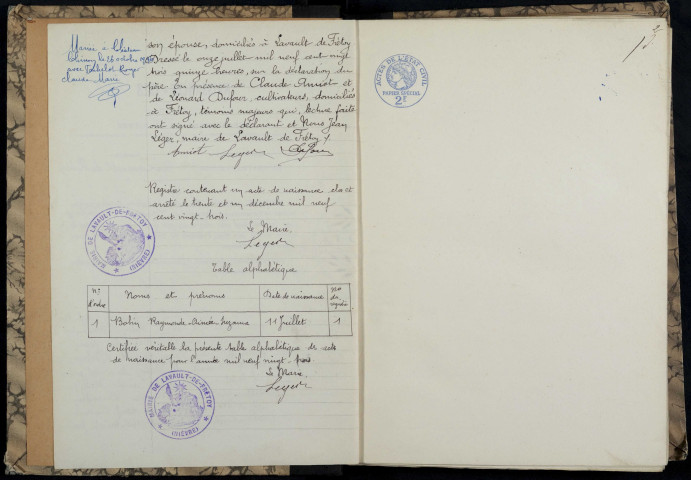 Mariée à Château
Chinon le 26 octobre
avec
Claude Marie
son épouse, domiciliés à Lavault de Frétoy
Dressé le onze juillet mil neuf cent vingt
trois quinze heures, sur la déclaration du
père En présence de Claude Anniot et
de Léonard Dufour, cultivateurs, domiciliés
à Frétoy, témoins majeurs qui, lecture faite
ont signé avec le déclarant et Nous Jean
Léger, maire de Lavault de Frétoy
Anniot Leger
Registre contenant un acte de naissance clos et
arrêté le trente et un décembre mil neuf
cent vingt-trois.
Le Maire,
Leger
MAIRIE DE LAVAULT-DE-FRETOY
(NIÈVRE)
Table alphabétique
Nos d'ordre Noms et prénoms Date de naissance Nos du registre
1 Raymonde-Aimée-Suzanne 11 Juillet 1
Certifiée véritable la présente table alphabétique des actes
de naissance pour l'année mil neuf vingt-trois
Le Maire
Leger
MAIRIE DE LAVAULT-DE-FRETOY
(NIÈVRE)
ACTES DE L'ETAT CIVIL
PAPIER SPECIAL
2F